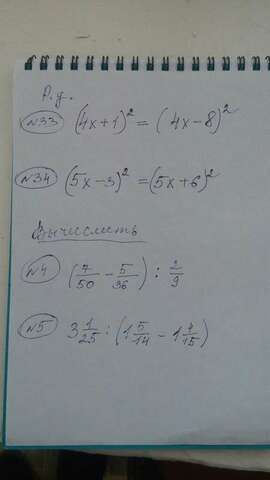 Р.у.
№33 (4x+1)² = (4x-8)²
№34 (5x-3)² = (5x+6)²
Вычислить
№4 (7/50 - 5/36) : 2/9
№5 3 1/25 : (1 5/14 - 1 4/15)